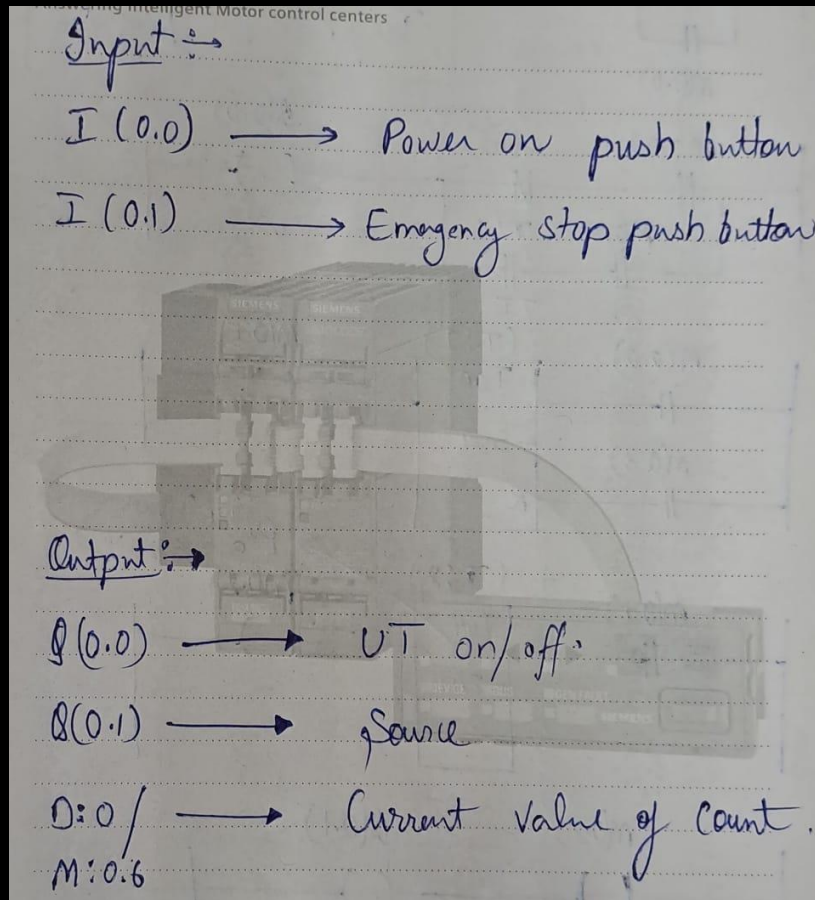 Answering Intelligent Motor control centers
Input :→
I (0.0) → Power on push button
I (0.1) → Emergency stop push button
SIEMENS SIEMENS
Output :→
Q(0.0) → UT on/off.
Q(0.1) → Source
D:0/ → Current value of count.
M:0.6